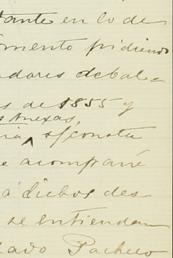 tante en lo de
mento pidiendo
dores de bal
s de 1855 y
s anexas,
ia, si consta
e acompañé
a dichos des
se entiendan
cado Pacheco